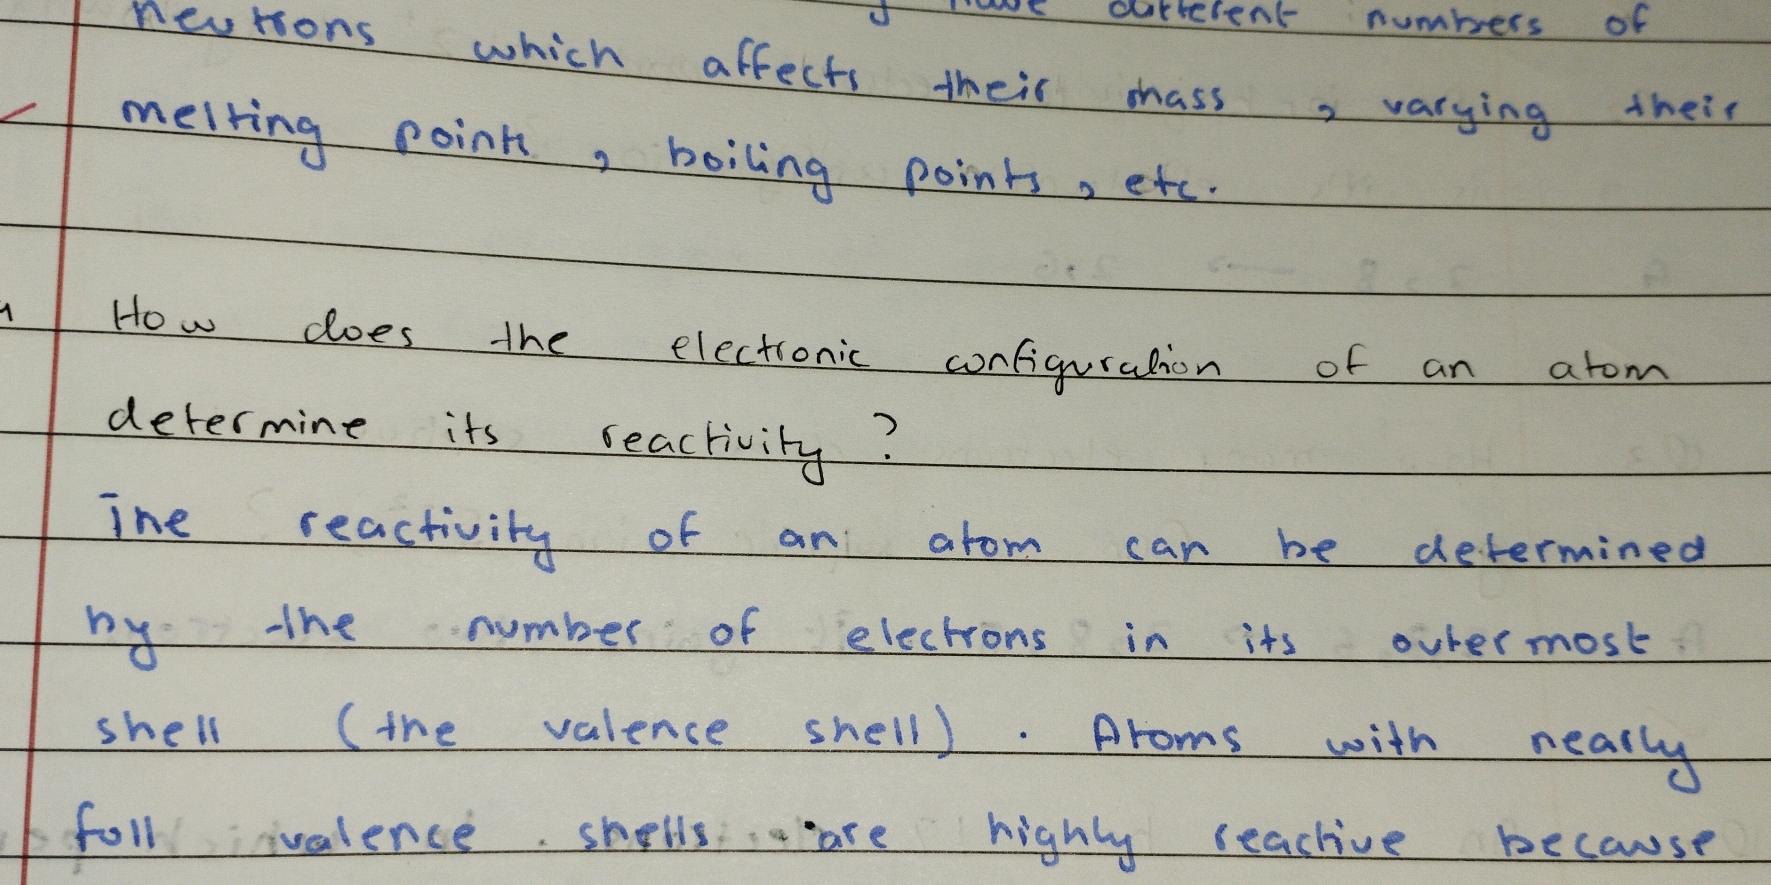 have different numbers of
neutrons which affects their mass , varying their
melting points , boiling points , etc.
How does the electronic configuration of an atom
determine its reactivity ?
The reactivity of an atom can be determined
by the number of electrons in its outermost
shell (the valence shell) . Atoms with nearly
full valence shells are highly reactive because